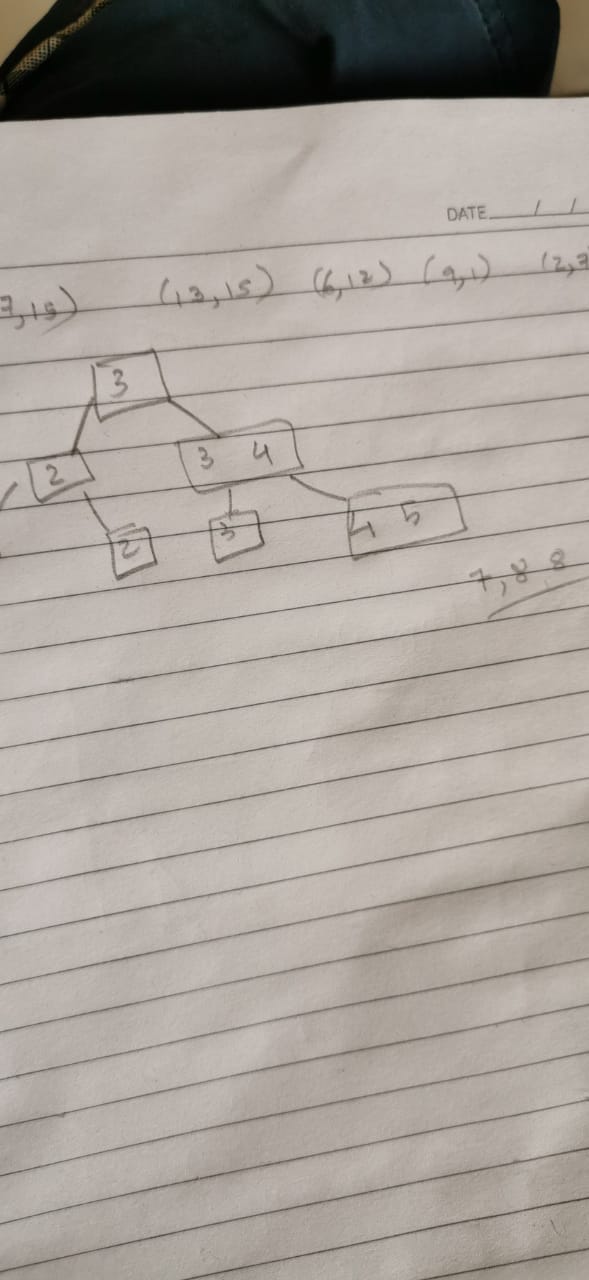 DATE / /
7,15) (13,15) (6,12) (9,1) (2,7
3
2 3 4
2 3 4 5
7,8 8